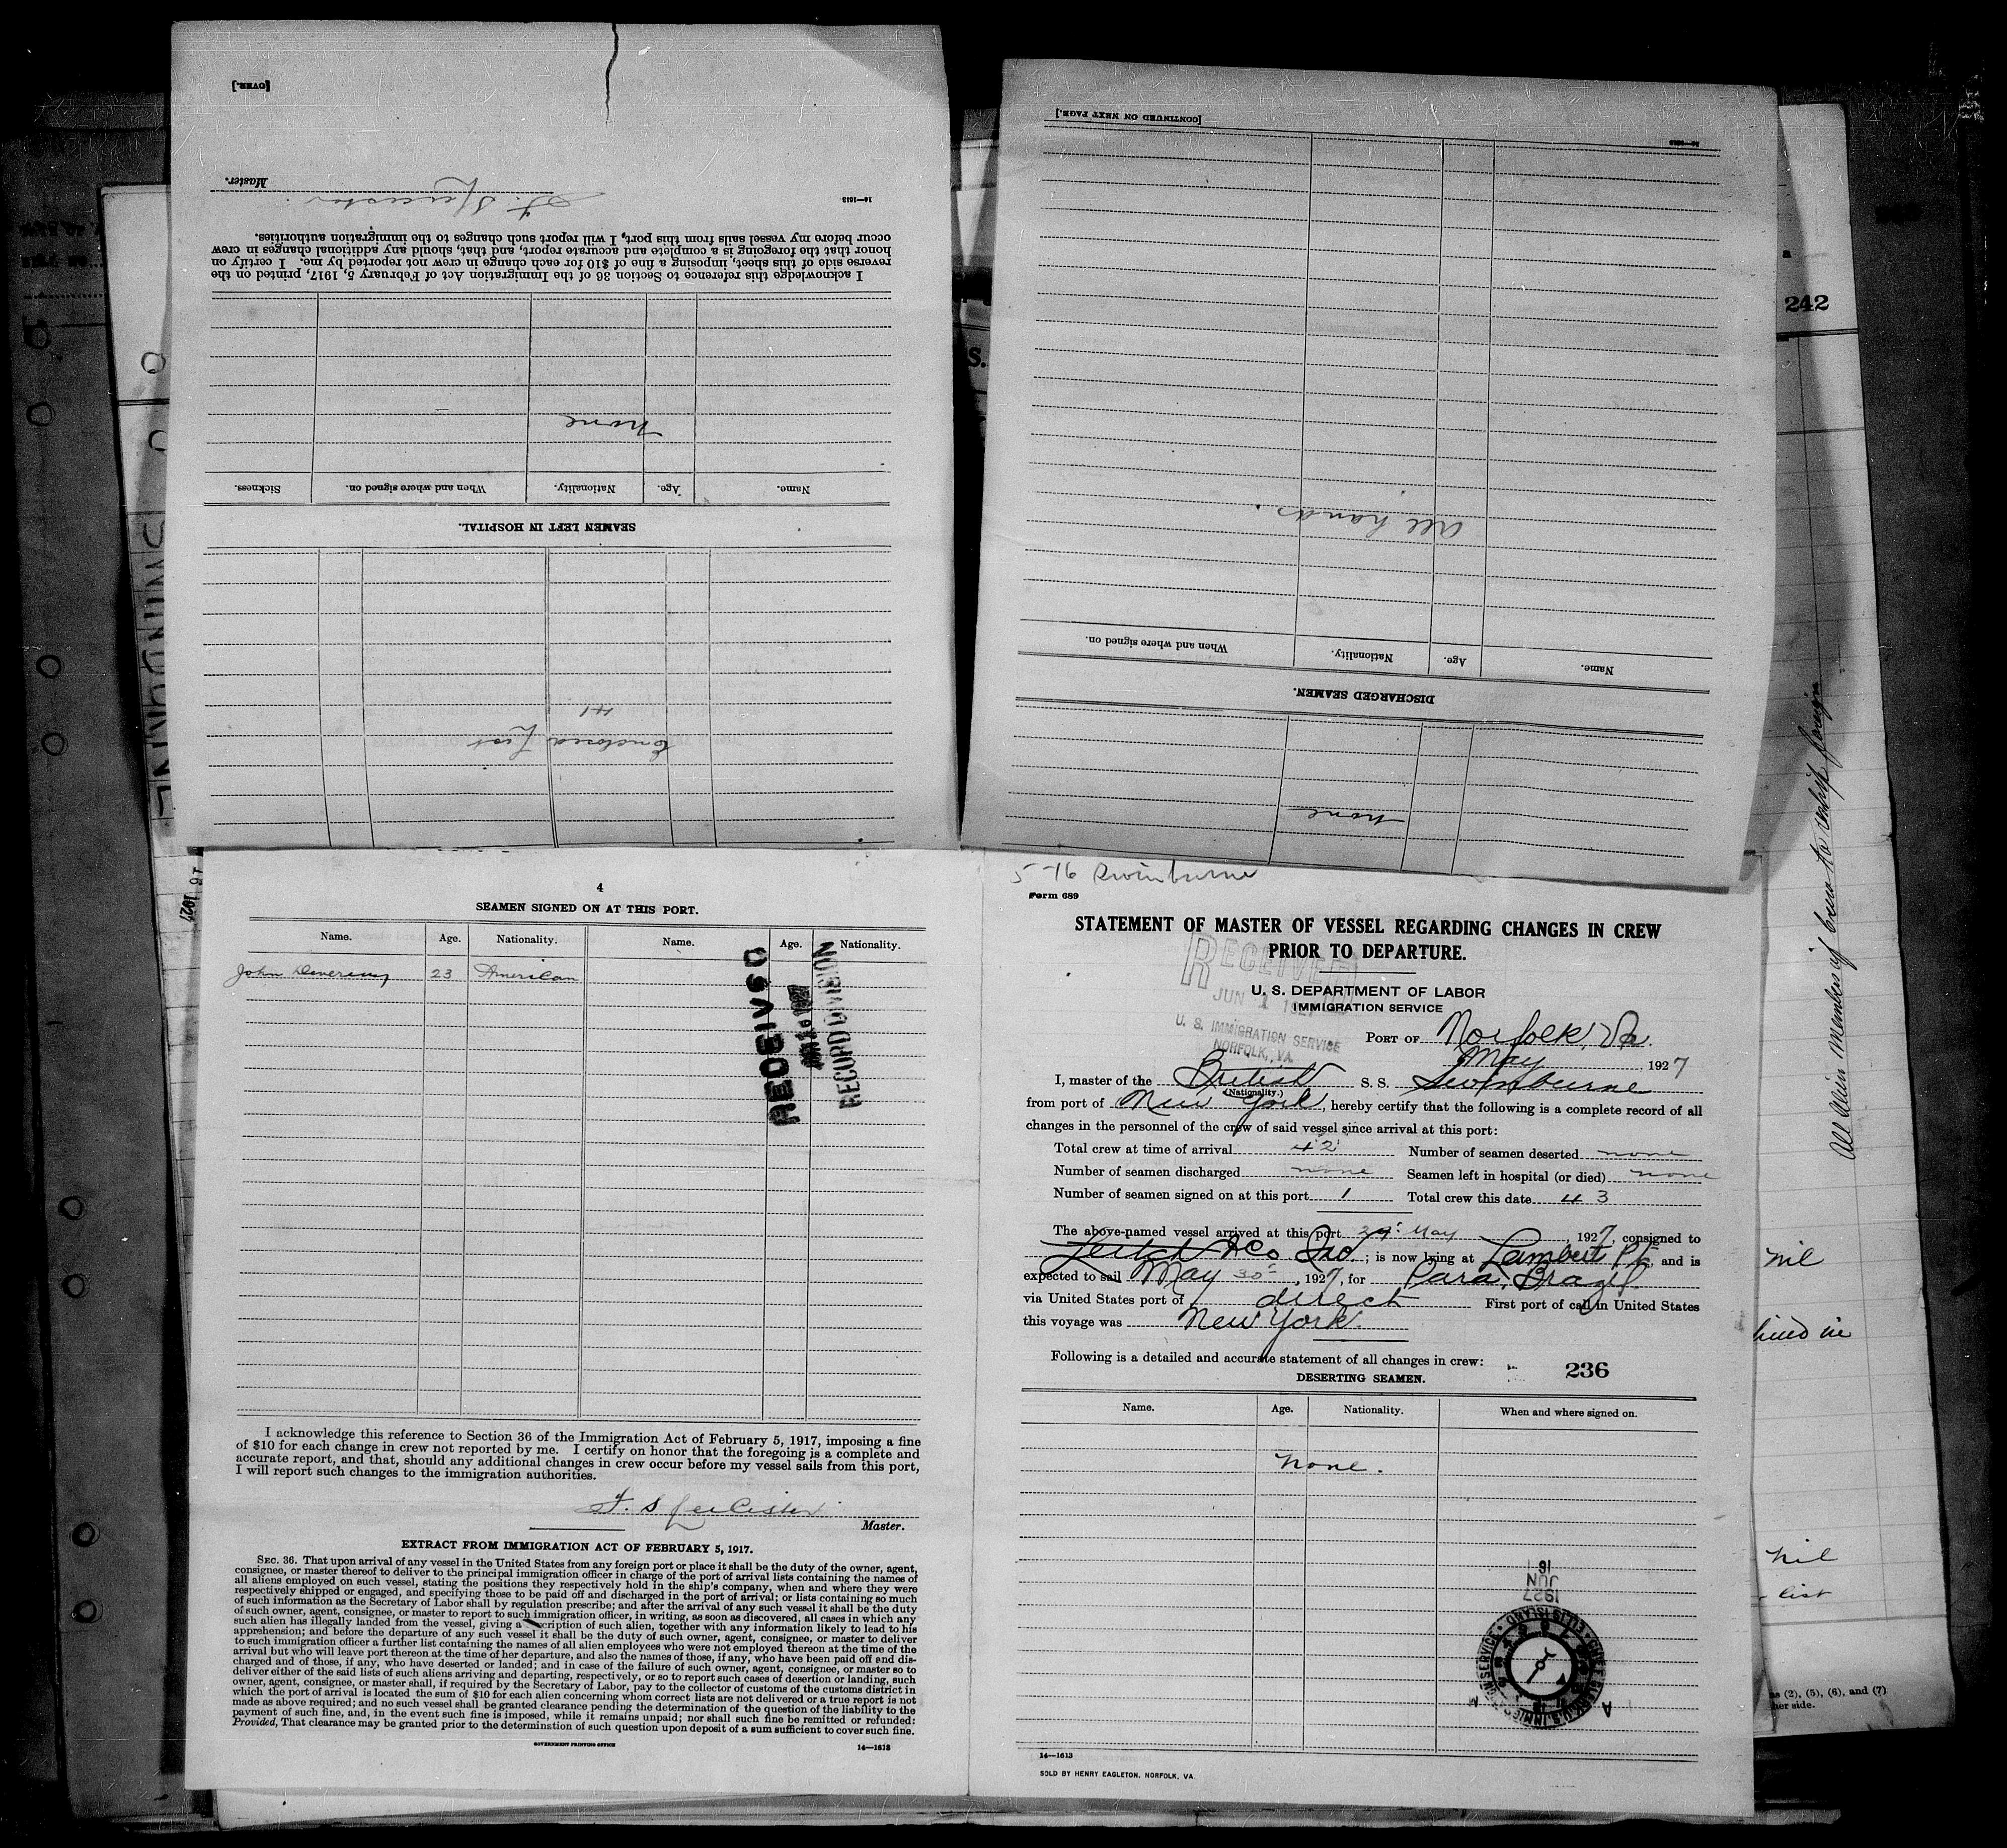 [OVER.]
Master.
14—1613
I acknowledge this reference to Section 36 of the Immigration Act of February 5, 1917, printed on the
reverse side of this sheet, imposing a fine of $10 for each change in crew not reported by me. I certify on
honor that the foregoing is a complete and accurate report, and that, should any additional changes in crew
occur before my vessel sails from this port, I will report such changes to the immigration authorities.
none
Name. Age. Nationality. When and where signed on. Sickness.
SEAMEN LEFT IN HOSPITAL.
41
Enclosed List
[CONTINUED ON NEXT PAGE.]
14—1613
All hands.
Name. Age. Nationality. When and where signed on.
DISCHARGED SEAMEN.
none
242
S.
All Alien members of crew to reship foreign
4
SEAMEN SIGNED ON AT THIS PORT.
Name. Age. Nationality. Name. Age. Nationality.
John 23 American
RECEIVED
1927
RECORD DIVISION
I acknowledge this reference to Section 36 of the Immigration Act of February 5, 1917, imposing a fine
of $10 for each change in crew not reported by me. I certify on honor that the foregoing is a complete and
accurate report, and that, should any additional changes in crew occur before my vessel sails from this port,
I will report such changes to the immigration authorities.
Master.
EXTRACT FROM IMMIGRATION ACT OF FEBRUARY 5, 1917.
SEC. 36. That upon arrival of any vessel in the United States from any foreign port or place it shall be the duty of the owner, agent,
consignee, or master thereof to deliver to the principal immigration officer in charge of the port of arrival lists containing the names of
all aliens employed on such vessel, stating the positions they respectively hold in the ship's company, when and where they were
respectively shipped or engaged, and specifying those to be paid off and discharged in the port of arrival; or lists containing so much
of such information as the Secretary of Labor shall by regulation prescribe; and after the arrival of any such vessel it shall be the duty
of such owner, agent, consignee, or master to report to such immigration officer, in writing, as soon as discovered, all cases in which any
such alien has illegally landed from the vessel, giving a scription of such alien, together with any information likely to lead to his
apprehension; and before the departure of any such vessel it shall be the duty of such owner, agent, consignee, or master to deliver
to such immigration officer a further list containing the names of all alien employees who were not employed thereon at the time of the
arrival but who will leave port thereon at the time of her departure, and also the names of those, if any, who have been paid off and dis-
charged and of those, if any, who have deserted or landed; and in case of the failure of such owner, agent, consignee, or master so to
deliver either of the said lists of such aliens arriving and departing, respectively, or so to report such cases of desertion or landing, such
owner, agent, consignee, or master shall, if required by the Secretary of Labor, pay to the collector of customs of the customs district in
which the port of arrival is located the sum of $10 for each alien concerning whom correct lists are not delivered or a true report is not
made as above required; and no such vessel shall be granted clearance pending the determination of the question of the liability to the
payment of such fine, and, in the event such fine is imposed, while it remains unpaid; nor shall such fine be remitted or refunded:
Provided, That clearance may be granted prior to the determination of such question upon deposit of a sum sufficient to cover such fine.
GOVERNMENT PRINTING OFFICE 14—1613
5-16 Swinburne
Form 689
STATEMENT OF MASTER OF VESSEL REGARDING CHANGES IN CREW
PRIOR TO DEPARTURE.
RECEIVED
JUN 1 1927
U. S. IMMIGRATION SERVICE
NORFOLK, VA.
U. S. DEPARTMENT OF LABOR
IMMIGRATION SERVICE
PORT OF Norfolk, Va.
May 1927
I, master of the British S. S. Swinburne
(Nationality.)
from port of New York, hereby certify that the following is a complete record of all
changes in the personnel of the crew of said vessel since arrival at this port:
Total crew at time of arrival 42 Number of seamen deserted none
Number of seamen discharged none Seamen left in hospital (or died) none
Number of seamen signed on at this port 1 Total crew this date 43
The above-named vessel arrived at this port May, 1927, consigned to
&Co; is now lying at Lamberts Pt, and is
expected to sail May 30, 1927, for Para, Brazil.
via United States port of direct First port of call in United States
this voyage was New York.
Following is a detailed and accurate statement of all changes in crew:
236
DESERTING SEAMEN.
Name. Age. Nationality. When and where signed on.
none.
1927
JUN
16
14—1613
SOLD BY HENRY EAGLETON, NORFOLK, VA.
nil
nil
list
(2), (5), (6), and (7)
her side.